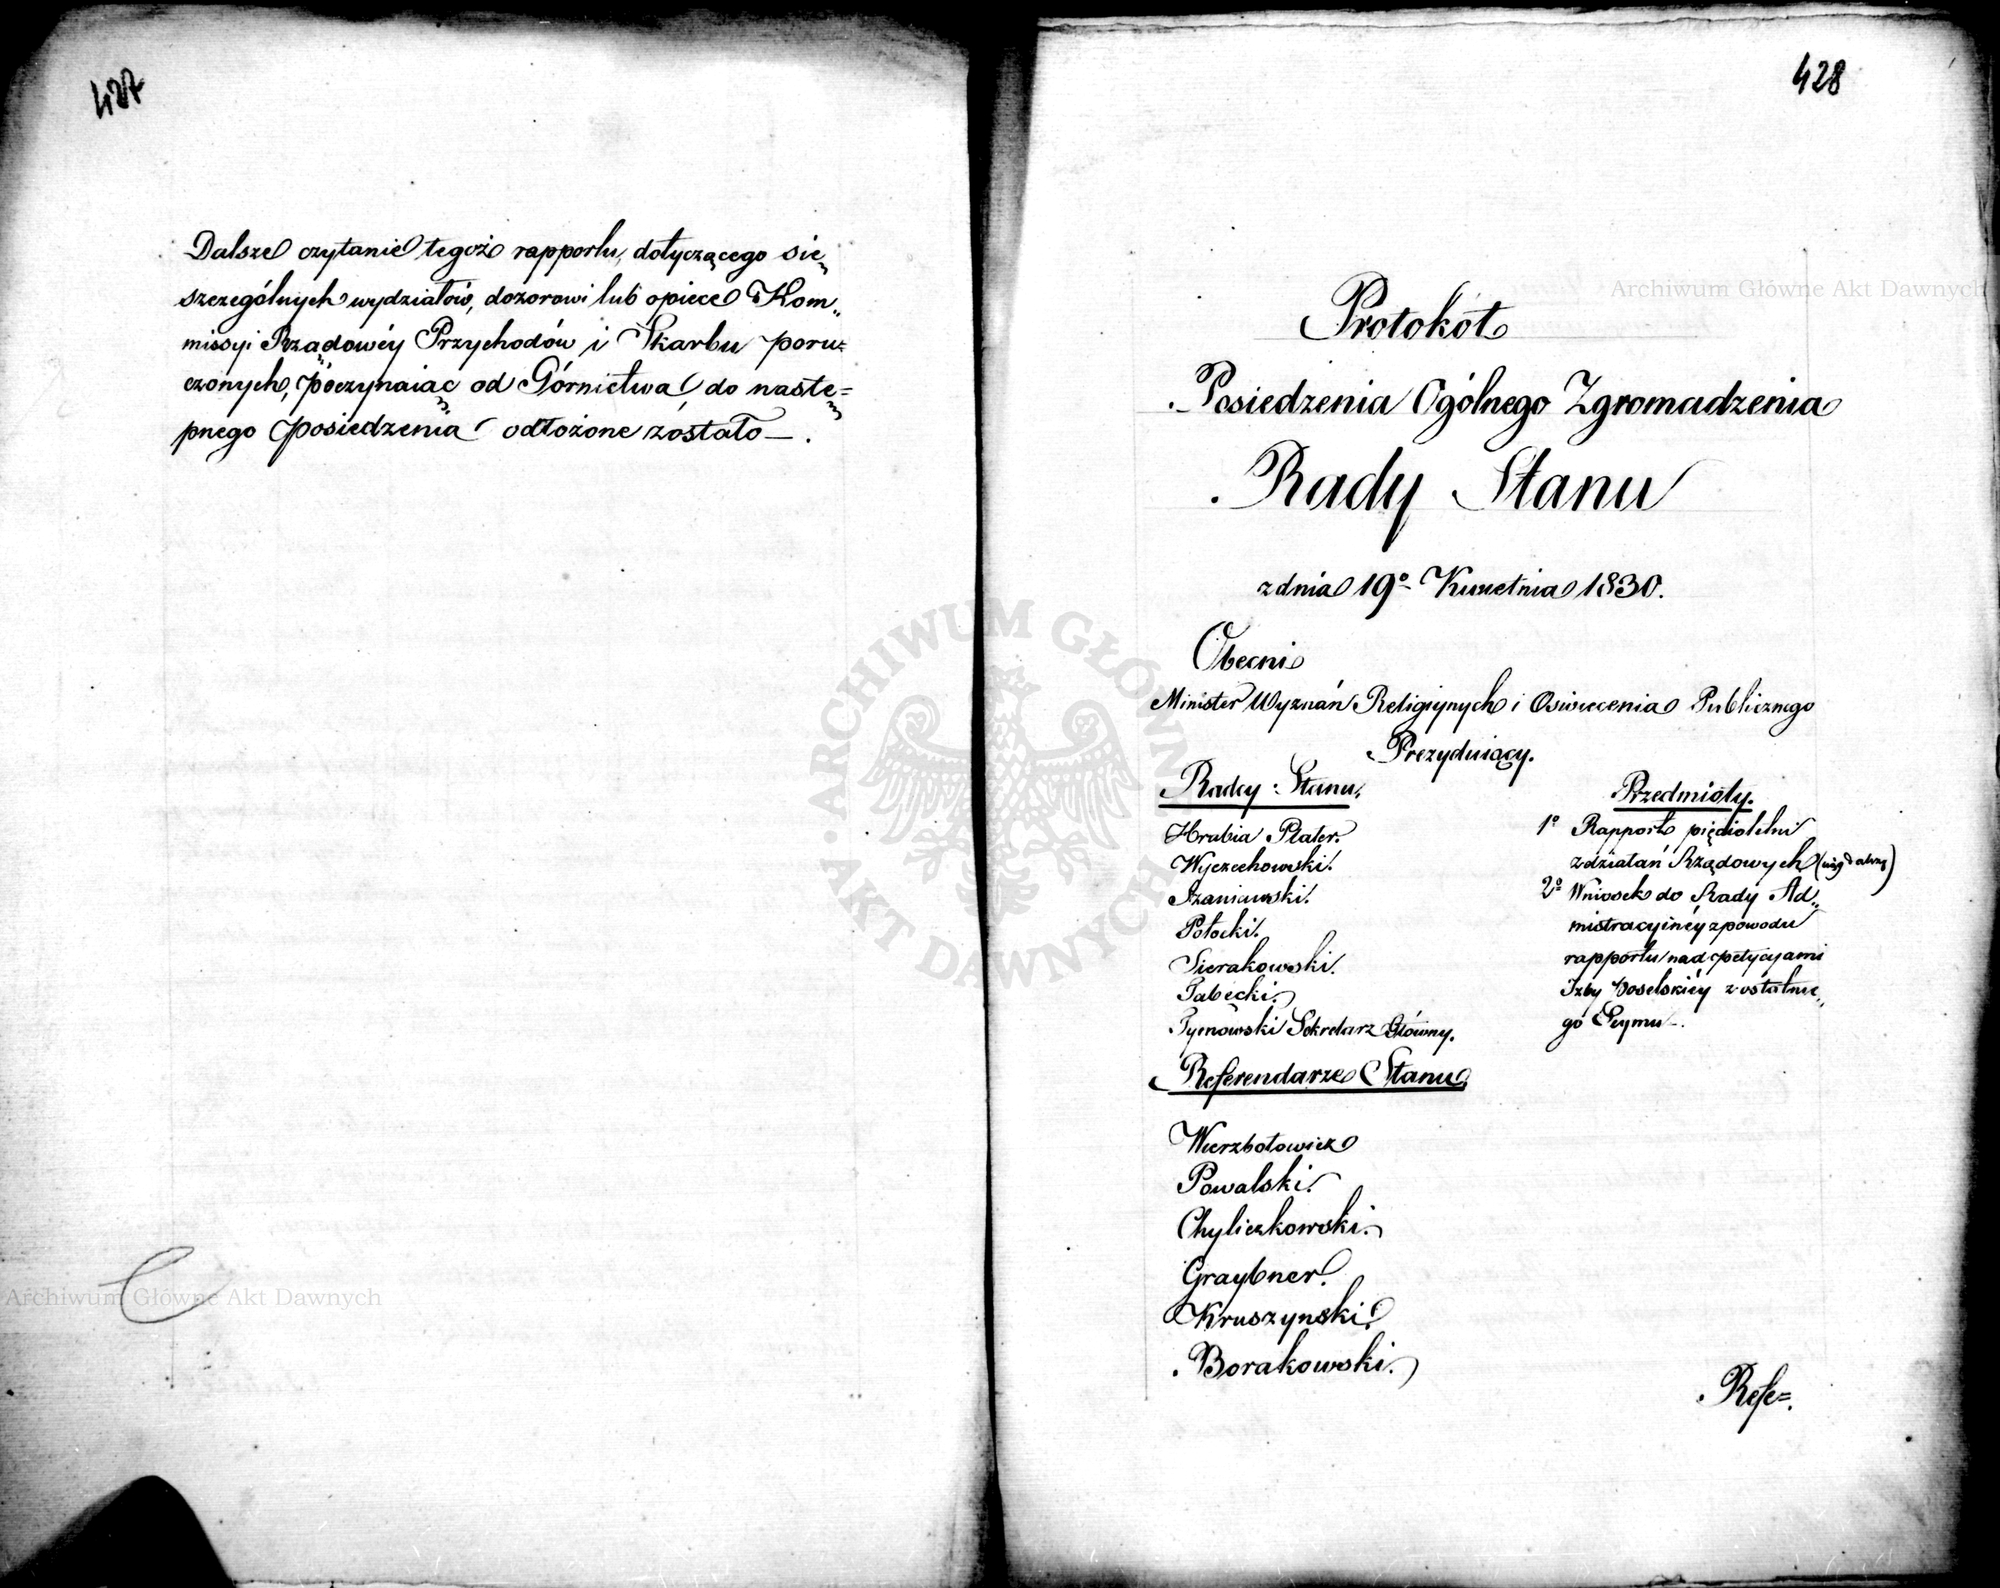 427
Dalsze czytanie tegoż rapportu, dotyczącego się
szczególnych wydziałów, dozorowi lub opiece Kom„
missyi Rządowéy Przychodów i Skarbu poru=
czonych, poczynaiąc od Górnictwa, do nastę=
pnego posiedzenia odłożone zostało —.
428
Protokół
Posiedzenia Ogólnego Zgromadzenia
Rady Stanu
z dnia 19º Kwietnia 1830.
Obecni
Minister Wyznań Religiynych i Oświecenia Publicznego
Prezyduiący.
Radcy Stanu.
Hrabia Plater.
Wyczechowski.
Szaniawski.
Potocki.
Sierakowski.
Tabęcki.
Tymowski Sekretarz Główny.
Referendarze Stanu
Wierzbołowicz
Powalski.
Chyliczkowski.
Graybner.
Kruszynski.
Borakowski.
Przedmioty.
1º Rapport pięcioletni
z działań Rządowych
2º Wniosek do Rady Ad„
mistracyinéy z powodu
rapportu nad petycyami
Izby Poselskiéy z ostatnie„
go Seymu —.
Refe=.
Archiwum Główne Akt Dawnych
Archiwum Główne Akt Dawnych
ARCHIWUM GŁÓWNE AKT DAWNYCH